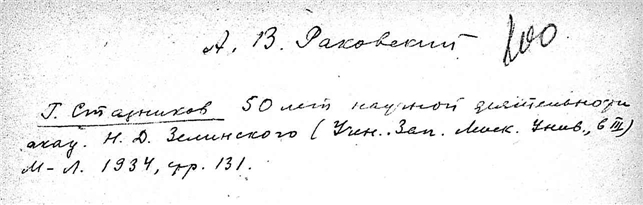 А. В. Раковский
Г. Стадников 50 лет научной деятельности
акад. Н. Д. Зелинского (Учен. Зап. Моск. Унив., в III)
М-Л. 1934, стр. 131.